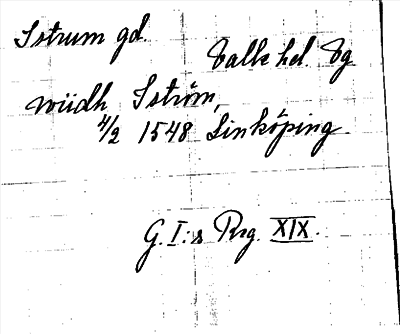 Istrum gd.
Valle hd. Vg
widh Iström,
4/2 1548 Linköping
G. I:s Reg. XIX.